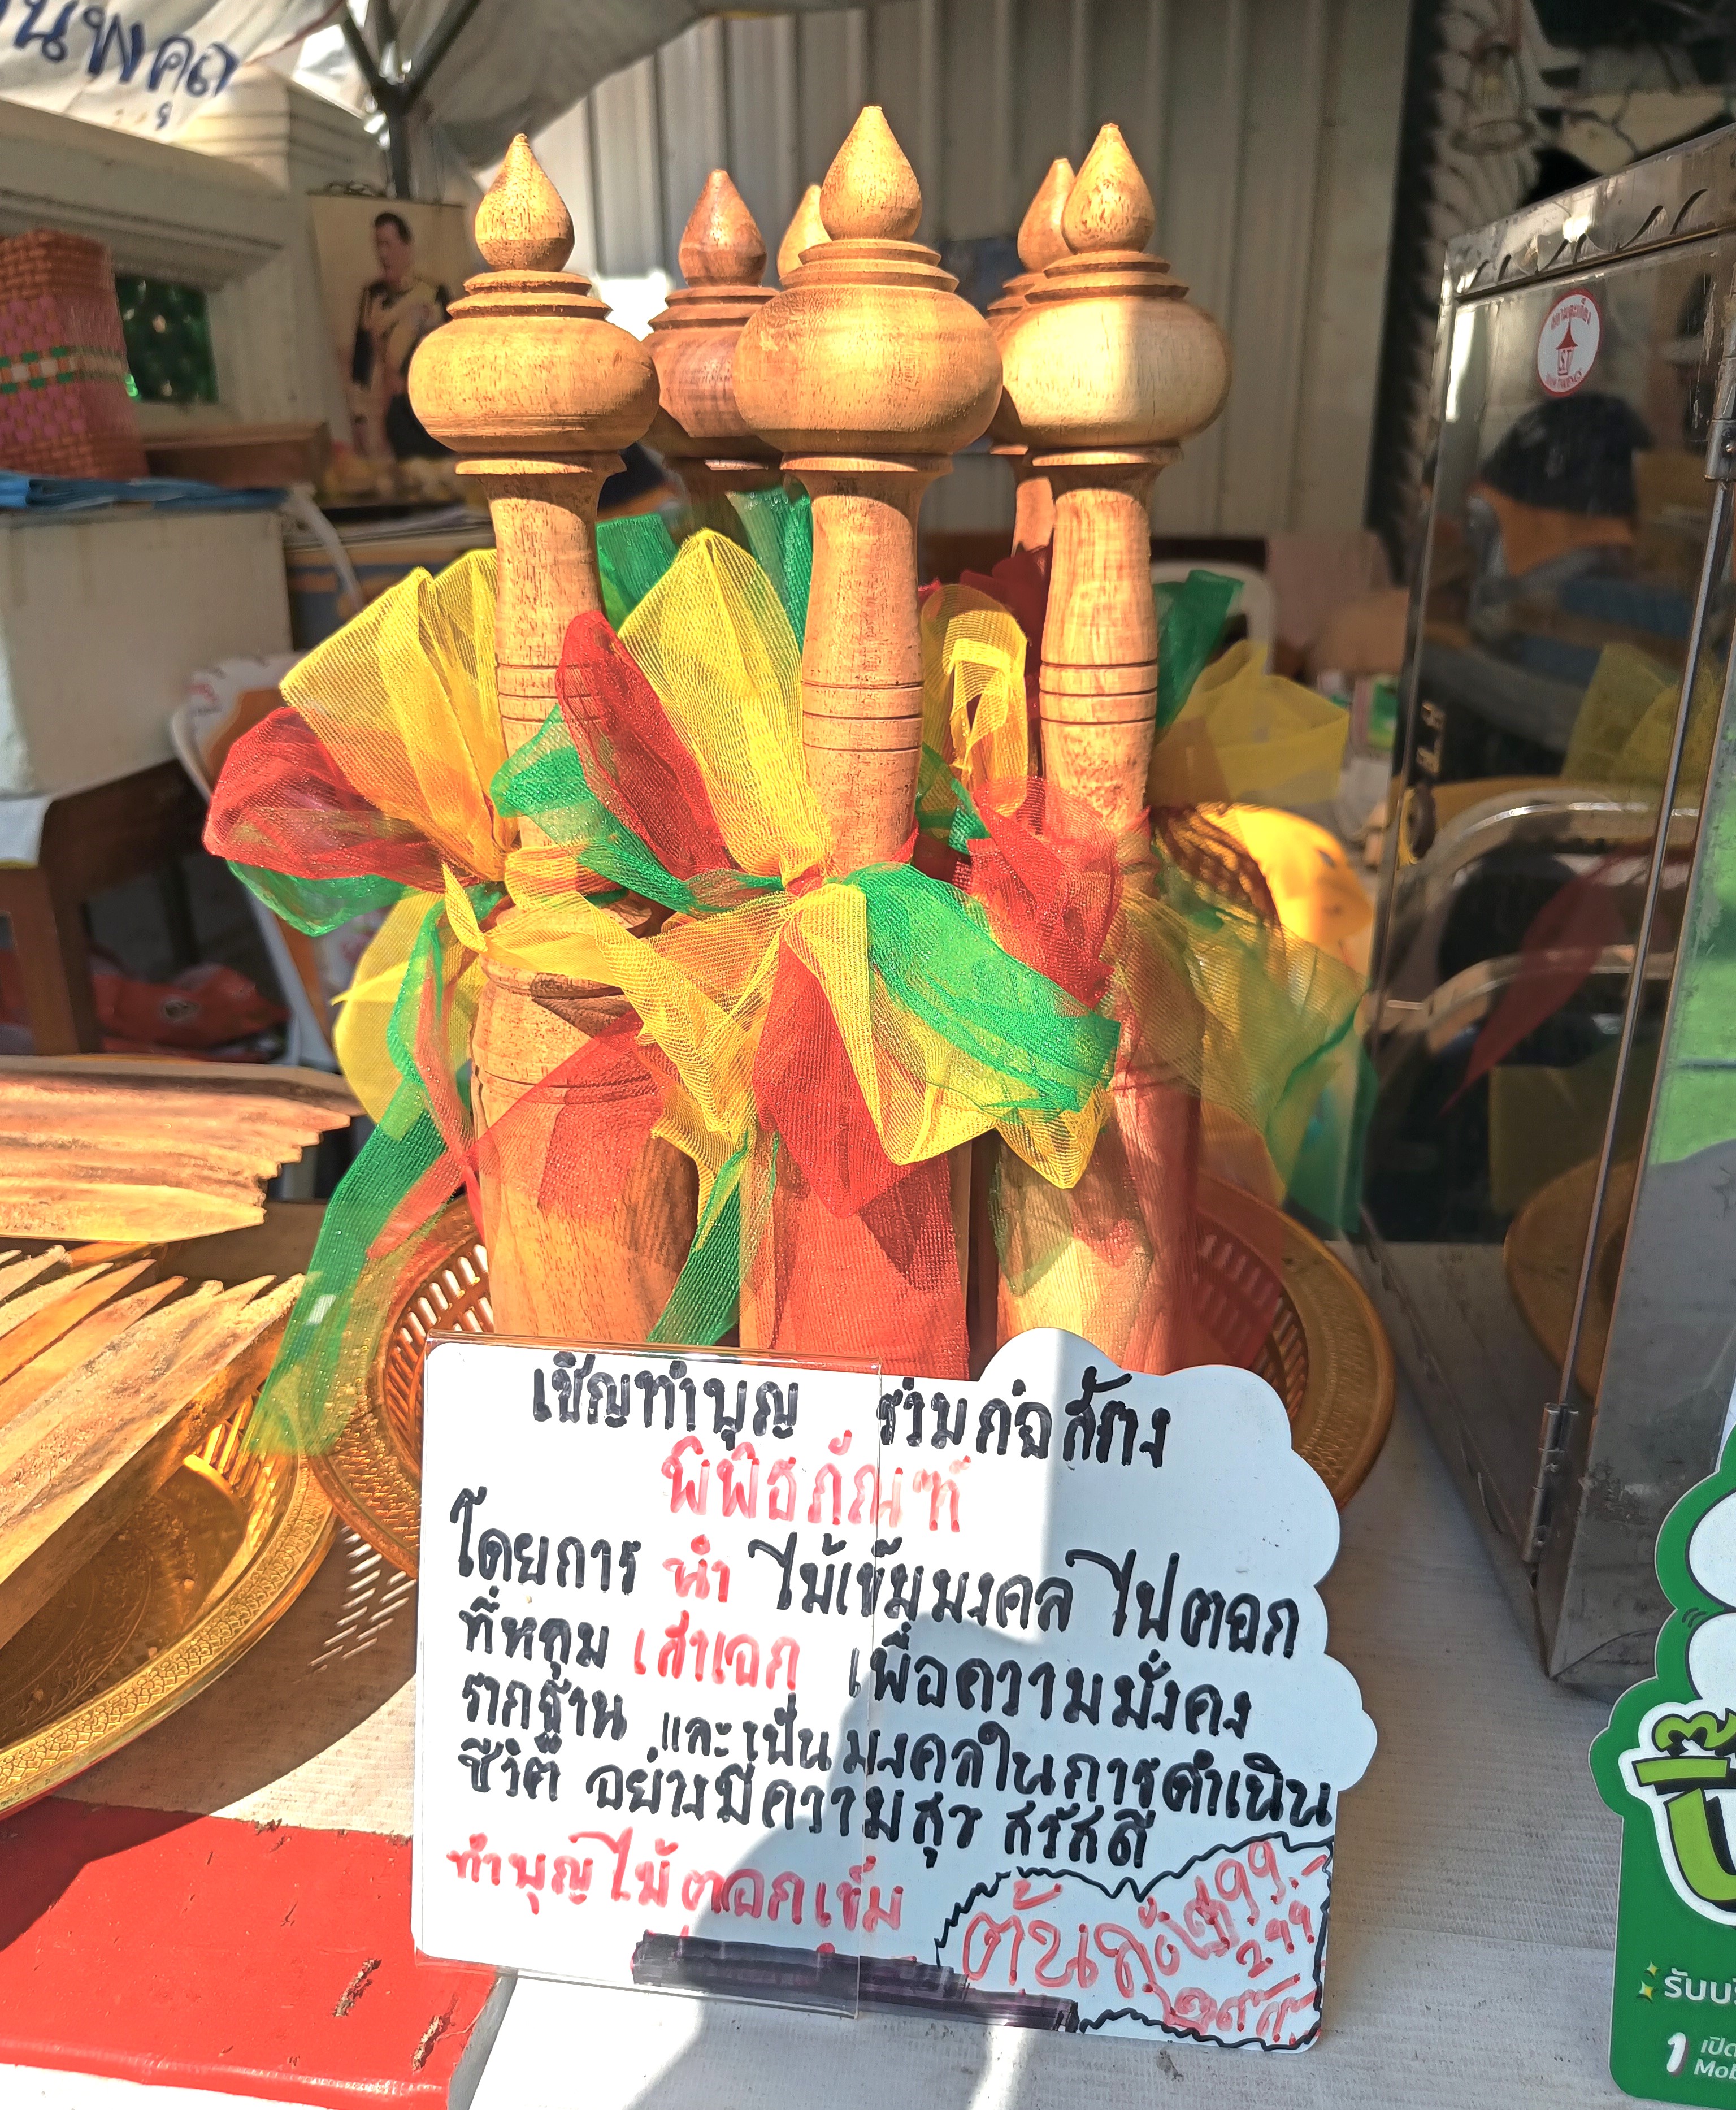 เชิญทำบุญ ร่วมก่อสร้าง
พิพิธภัณฑ์
โดยการ นำ ไม้เข็มมงคล ไปตอก
ที่หลุม เสาเอก เพื่อความมั่งคง
รากฐาน และเป็นมงคลในการดำเนิน
ชีวิต อย่างมีความสุข สวัสดี
ทำบุญไม้ตอกเข็ม
ต้นละ
299
รับบ
1 เปิด
Mob